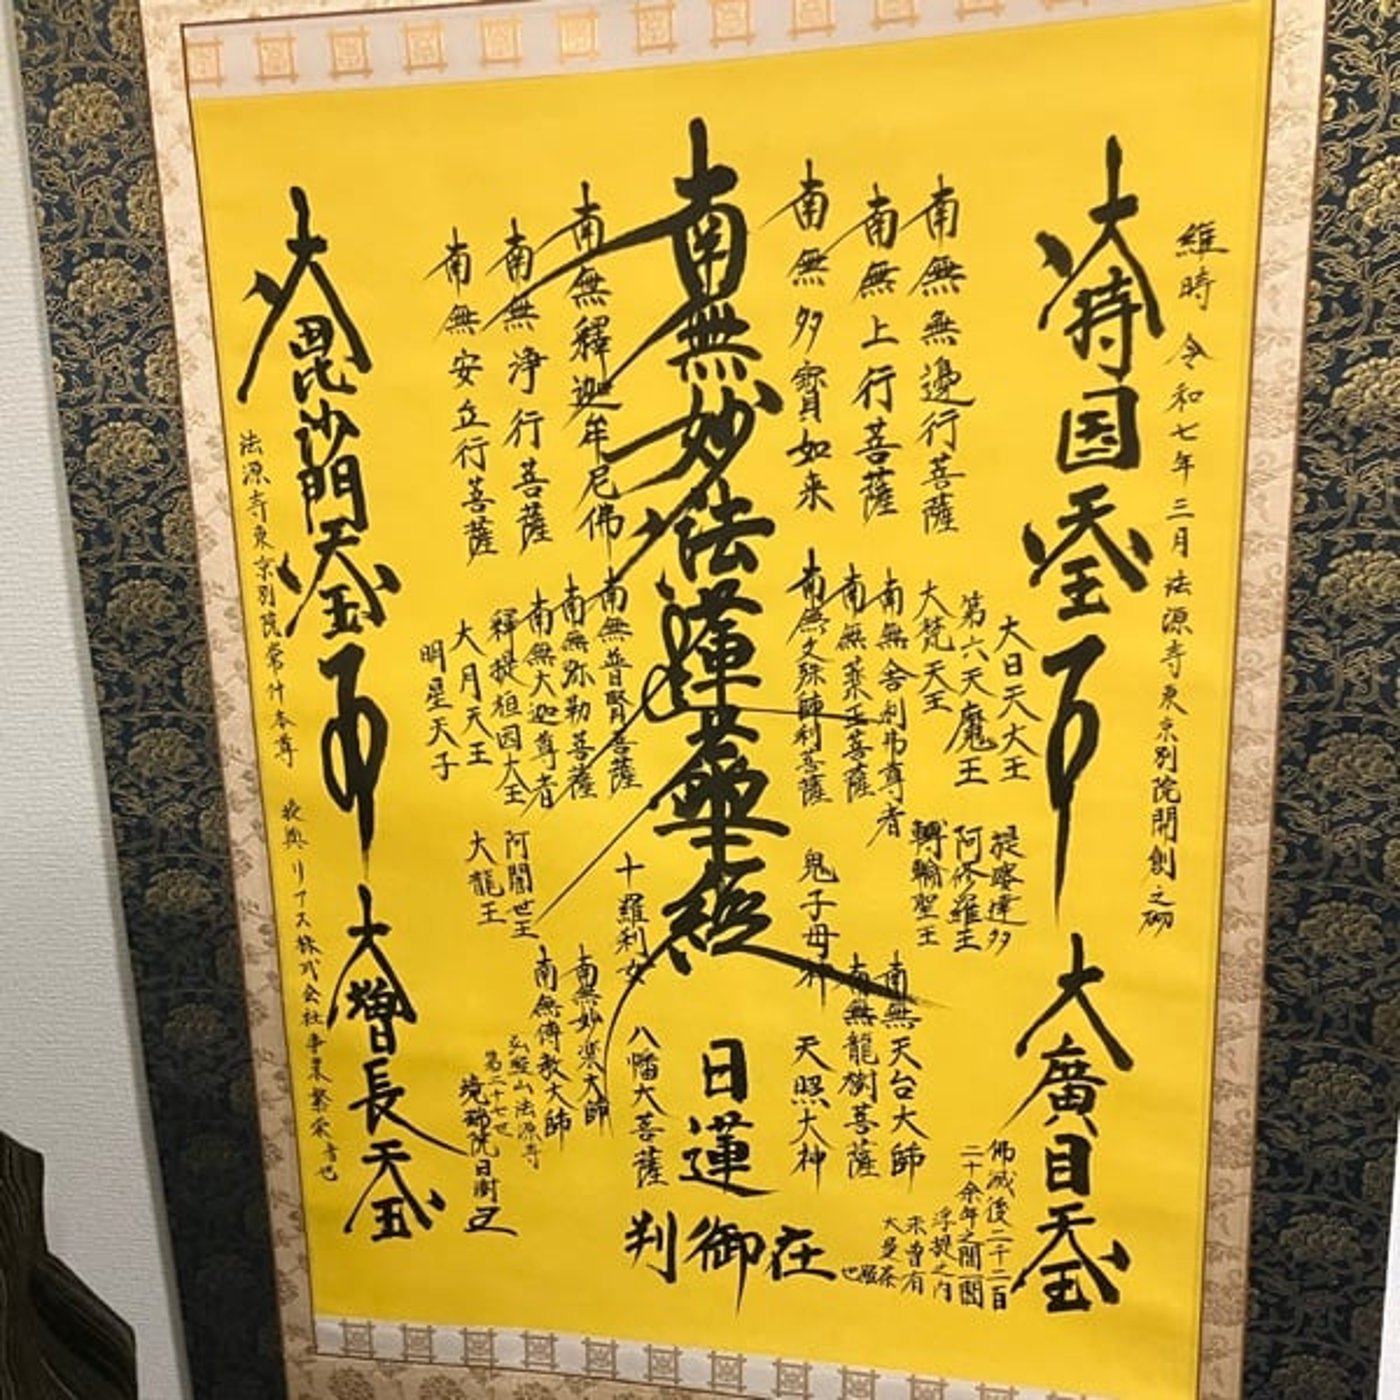 維時 令和七年三月 法源寺東京別院開創之砌
大持国天王
大廣目天王
南無無邊行菩薩
南無上行菩薩
南無多寳如来
南無妙法蓮華経
南無釋迦牟尼佛
南無浄行菩薩
南無安立行菩薩
大毘沙門天王
大日天大王
第六天魔王
大梵天王
南無舎利弗尊者
南無薬王菩薩
南無文殊師利菩薩
南無普賢菩薩
南無弥勒菩薩
南無大迦葉尊者
釋提桓因大王
大月天王
明星天子
提婆達多
阿修羅王
轉輪聖王
鬼子母神
十羅刹女
阿闍世王
大龍王
南無天台大師
南無龍樹菩薩
天照大神
日蓮
在御判
八幡大菩薩
南無妙楽大師
南無傳教大師
佛滅後二千二百
二十余年之間一閻
浮提之内
未曽有
大曼荼
羅也
山法源寺
第二十七世
院日樹
大増長天王
法源寺東京別院常什本尊 授與 リアス株式会社事業繁栄者也